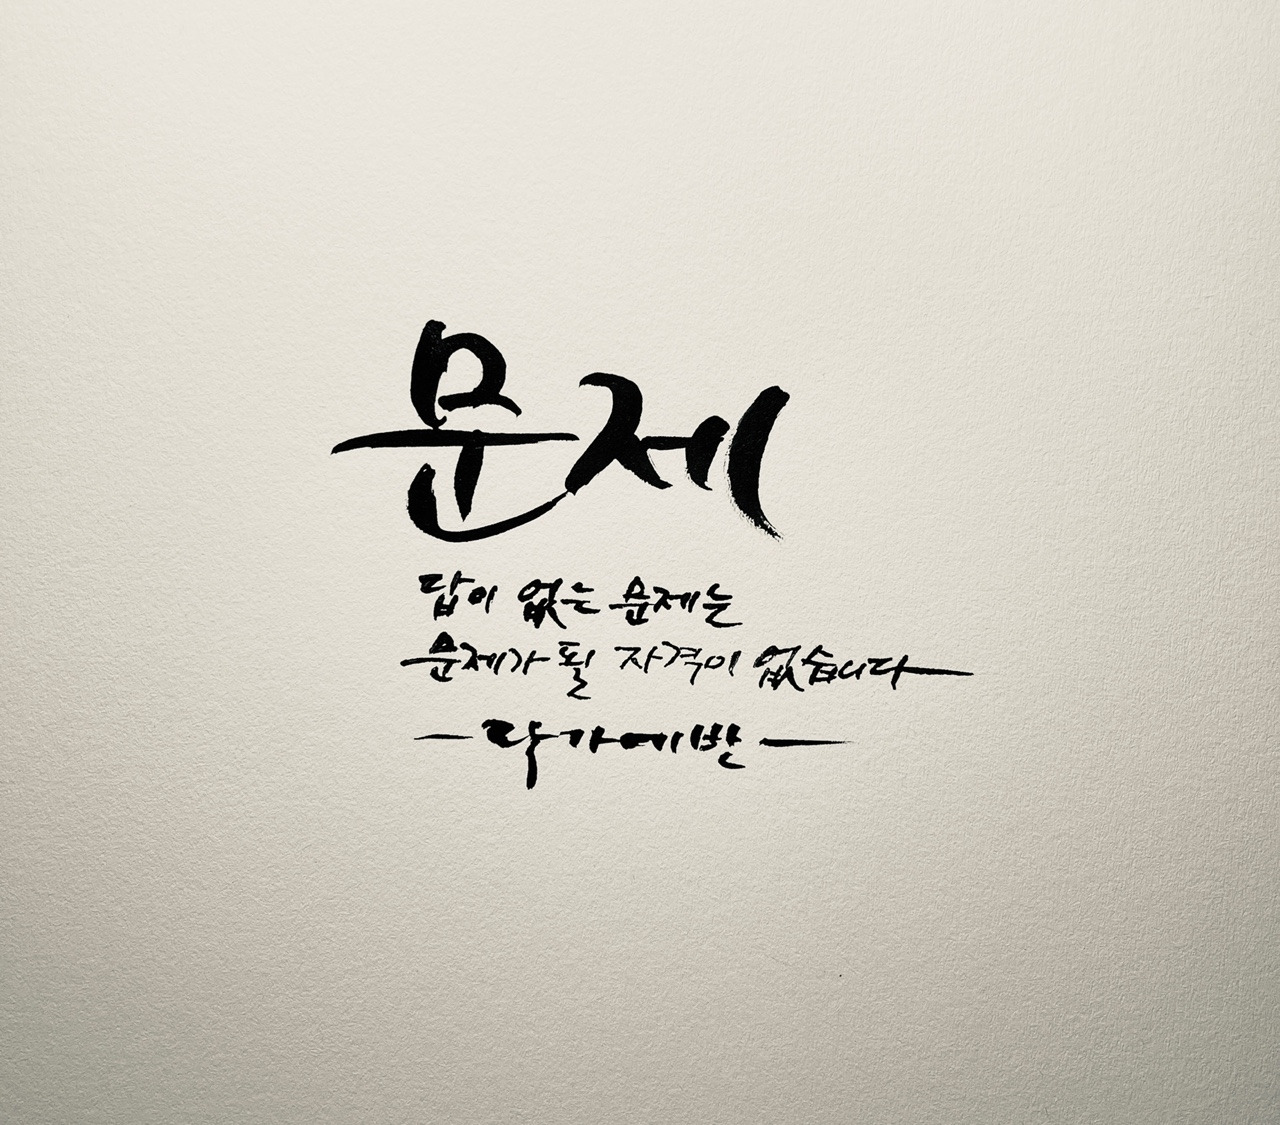 문제
답이 없는 문제는
문제가 될 자격이 없습니다
— 작가에반 —